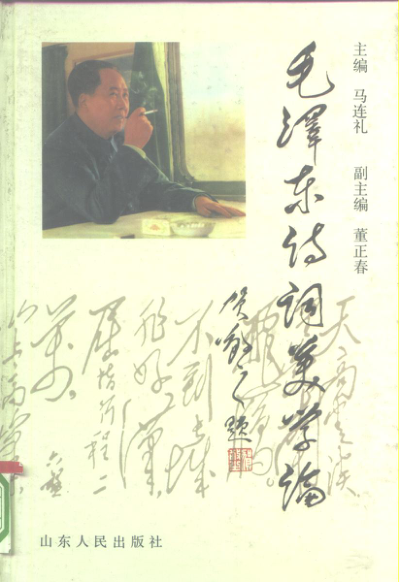 主编 马连礼 副主编 董正春
毛澤东诗词美学论
贺敬之题
天高云淡
不到长城
非好汉，
屈指行程二
万。
六盘
山东人民出版社